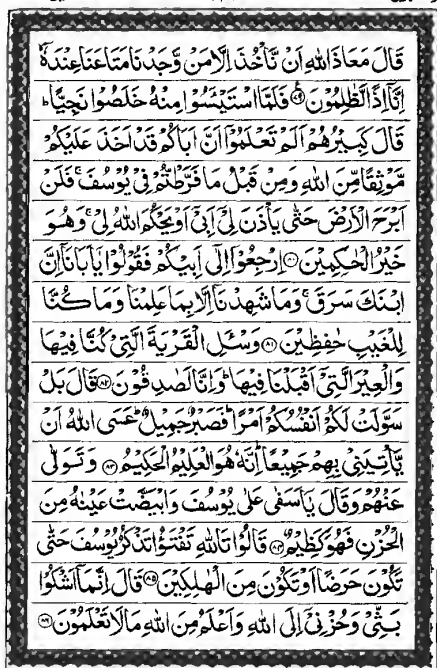 قَالَ مَعَاذَ اللهِ اَنْ نَّاْخُذَ اِلَّا مَنْ وَّجَدْنَا مَتَاعَنَا عِنْدَهٗۤ
اِنَّاۤ اِذًا لَّظٰلِمُوْنَ ۝۷۹ فَلَمَّا اسْتَيْـَٔسُوْا مِنْهُ خَلَصُوْا نَجِيًّا ؕ
قَالَ كَبِيْرُهُمْ اَلَمْ تَعْلَمُوْۤا اَنَّ اَبَاكُمْ قَدْ اَخَذَ عَلَيْكُمْ
مَّوْثِقًا مِّنَ اللهِ وَمِنْ قَبْلُ مَا فَرَّطْتُّمْ فِيْ يُوْسُفَ ۚ فَلَنْ
اَبْرَحَ الْاَرْضَ حَتّٰى يَاْذَنَ لِيْۤ اَبِيْۤ اَوْ يَحْكُمَ اللهُ لِيْ ۚ وَهُوَ
خَيْرُ الْحٰكِمِيْنَ ۝۸۰ اِرْجِعُوْۤا اِلٰۤى اَبِيْكُمْ فَقُوْلُوْا يٰۤاَبَانَاۤ اِنَّ
ابْنَكَ سَرَقَ ۚ وَمَا شَهِدْنَاۤ اِلَّا بِمَا عَلِمْنَا وَمَا كُنَّا
لِلْغَيْبِ حٰفِظِيْنَ ۝۸۱ وَسْـَٔلِ الْقَرْيَةَ الَّتِيْ كُنَّا فِيْهَا
وَالْعِيْرَ الَّتِيْۤ اَقْبَلْنَا فِيْهَا ؕ وَاِنَّا لَصٰدِقُوْنَ ۝۸۲ قَالَ بَلْ
سَوَّلَتْ لَكُمْ اَنْفُسُكُمْ اَمْرًا ؕ فَصَبْرٌ جَمِيْلٌ ؕ عَسَى اللهُ اَنْ
يَّاْتِيَنِيْ بِهِمْ جَمِيْعًا ؕ اِنَّهٗ هُوَ الْعَلِيْمُ الْحَكِيْمُ ۝۸۳ وَتَوَلّٰى
عَنْهُمْ وَقَالَ يٰۤاَسَفٰى عَلٰى يُوْسُفَ وَابْيَضَّتْ عَيْنٰهُ مِنَ
الْحُزْنِ فَهُوَ كَظِيْمٌ ۝۸۴ قَالُوْا تَاللهِ تَفْتَؤُا تَذْكُرُ يُوْسُفَ حَتّٰى
تَكُوْنَ حَرَضًا اَوْ تَكُوْنَ مِنَ الْهٰلِكِيْنَ ۝۸۵ قَالَ اِنَّمَاۤ اَشْكُوْا
بَثِّيْ وَحُزْنِيْۤ اِلَى اللهِ وَاَعْلَمُ مِنَ اللهِ مَا لَا تَعْلَمُوْنَ ۝۸۶